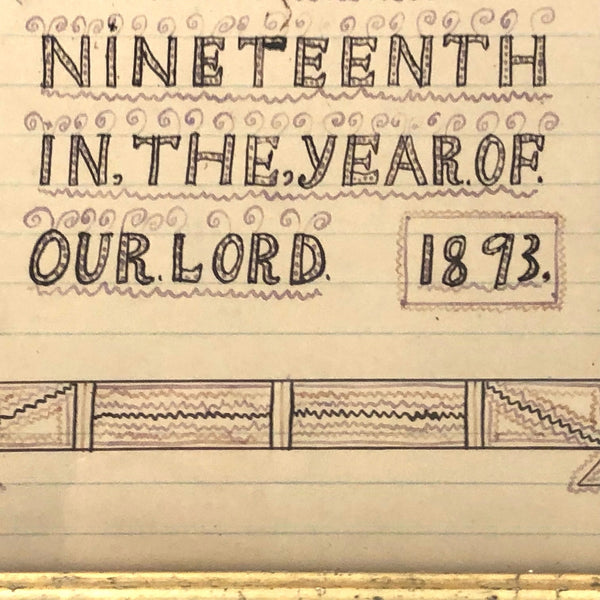 NINETEENTH
IN, THE, YEAR. OF.
OUR. LORD. 1893.